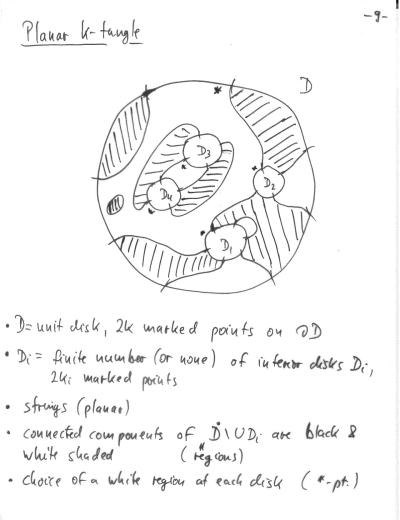 -9-
Planar k-tangle
*
D
D3
D4
D2
D1
• D= unit disk, 2k marked points on ∂D
• Di = finite number (or none) of interior disks Di,
2ki marked points
• strings (planar)
• connected components of D̊\∪Di are black &
white shaded (regions)
• choice of a white region at each disk (*-pt.)